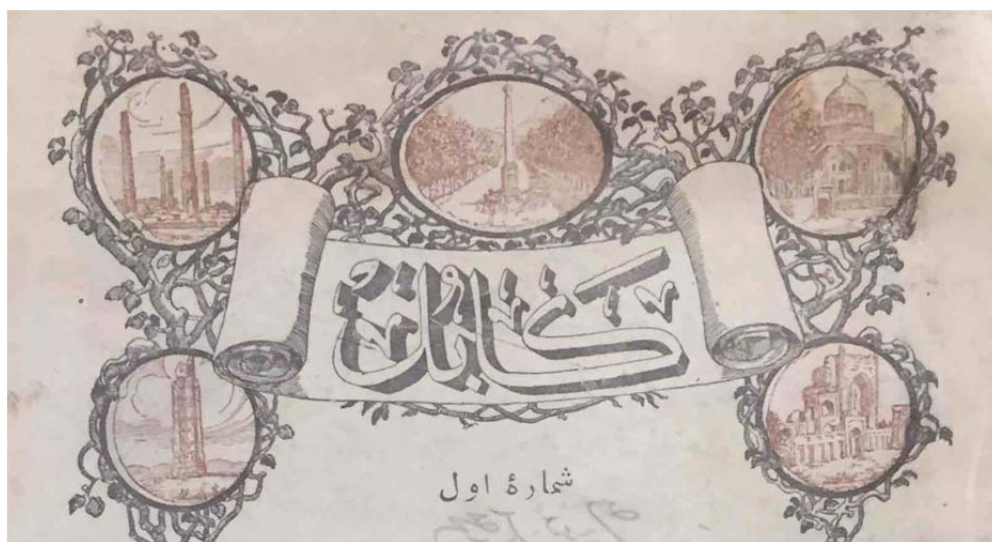 کابل
شمارهٔ اول